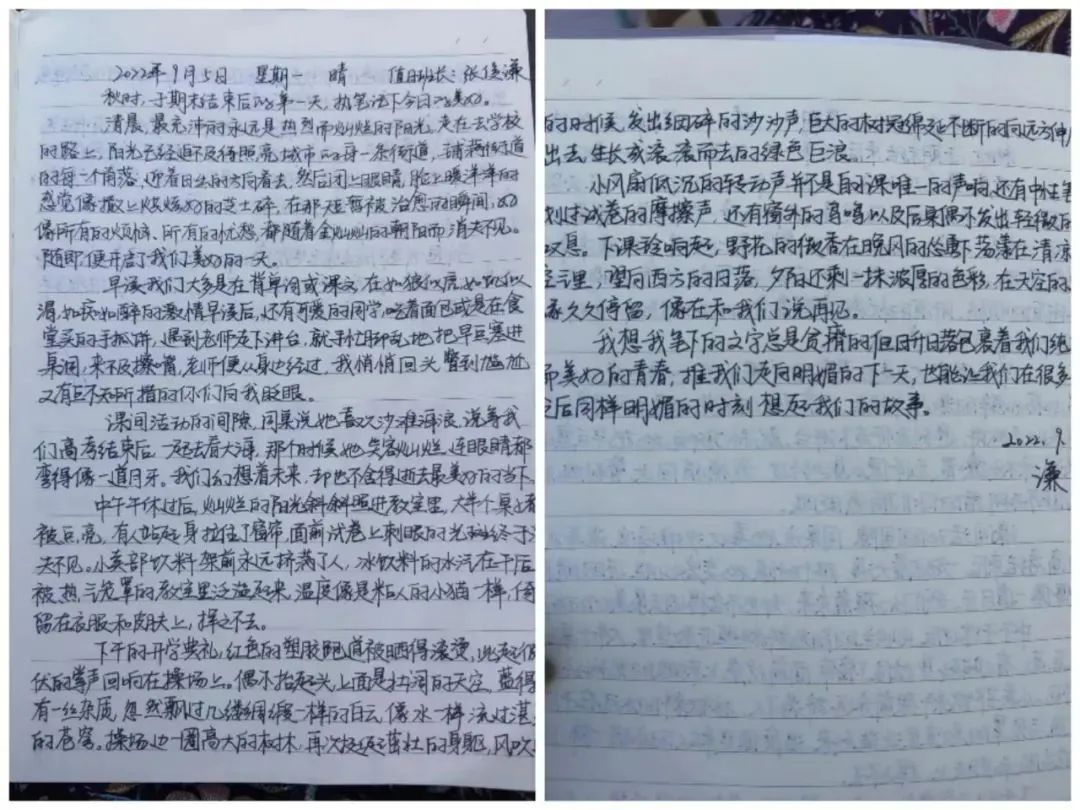 2022年9月5日 星期一 晴 值日班长：张俊谦
秋时，于期末结束后的第一天，执笔记下今日的美好。
清晨，最充沛的永远是热烈而灿烂的阳光，走在去学校
的路上，阳光已经迫不及待照亮城市的每一条街道，铺满街道
的每一个角落，迎着日出的方向看去，然后闭上眼睛，脸上暖洋洋的
感觉像撒上炫炫的芝士碎，在那短暂被治愈的瞬间，好
像所有的烦恼、所有的忧愁都随着金灿灿的朝阳而消失不见。
随即便开启了我们美好的一天。
早读我们大多是在背单词或课文，在如狼似虎、如饥似
渴、如痴如醉的激情早读后，还有可爱的同学吃着面包或是在食
堂买的手抓饼，遇到老师走下讲台，就手忙脚乱地把早豆塞进
桌洞，来不及擦嘴，老师便从身边经过，我悄悄回头，瞥到尴尬
又有巨不知所措的你们向我眨眼。
课间活动的间隙，同桌说她喜欢沙滩海浪，说等我
们高考结束后一起去看大海，那个时候她笑容灿烂，连眼睛都
弯得像一道月牙。我们幻想着未来，却也不舍得逝去最美好的当下。
中午午休过后，灿烂的阳光斜斜照进教室里，大半个桌子都
被点亮，有人站起身拉住了窗帘，面前试卷上刺眼的光终于消
失不见。小卖部饮料架前永远挤满了人，冰饮料的水汽在午后
被热气笼罩的教室里泛滥起来，温度像是粘人的小猫一样，停
留在衣服和皮肤上，挥之不去。
下午的开学典礼，红色的塑胶跑道被晒得滚烫，此起彼
伏的掌声回响在操场上。偶尔抬起头，上面是壮阔的天空，蓝得
有一丝杂质，忽然飘过几缕绸缎一样的白云，像水一样流过湛
的苍穹。操场边一圈高大的树木，再次挺起茁壮的身躯，风吹
的时候，发出细碎的沙沙声，巨大的树冠绵延不断的向远方伸
出去，生长成滚滚而去的绿色巨浪。
小风扇低沉的转动声并不是自习课唯一的声响，还有中性笔
划过试卷的摩擦声，还有窗外的鸟鸣以及后桌偶尔发出轻微的
叹息。下课铃响起，野花的微香在晚风的怂恿下落落在清凉
空气里，望向西方的日落，夕阳还剩一抹浓厚的色彩，在天空的
久久停留，像在和我们说再见。
我想我笔下的文字总是贫瘠的但日升日落包裹着我们纯
而美好的青春，推我们走向明媚的下一天，也能让我们在很多
之后同样明媚的时刻想起我们的故事。
2022.9.
谦